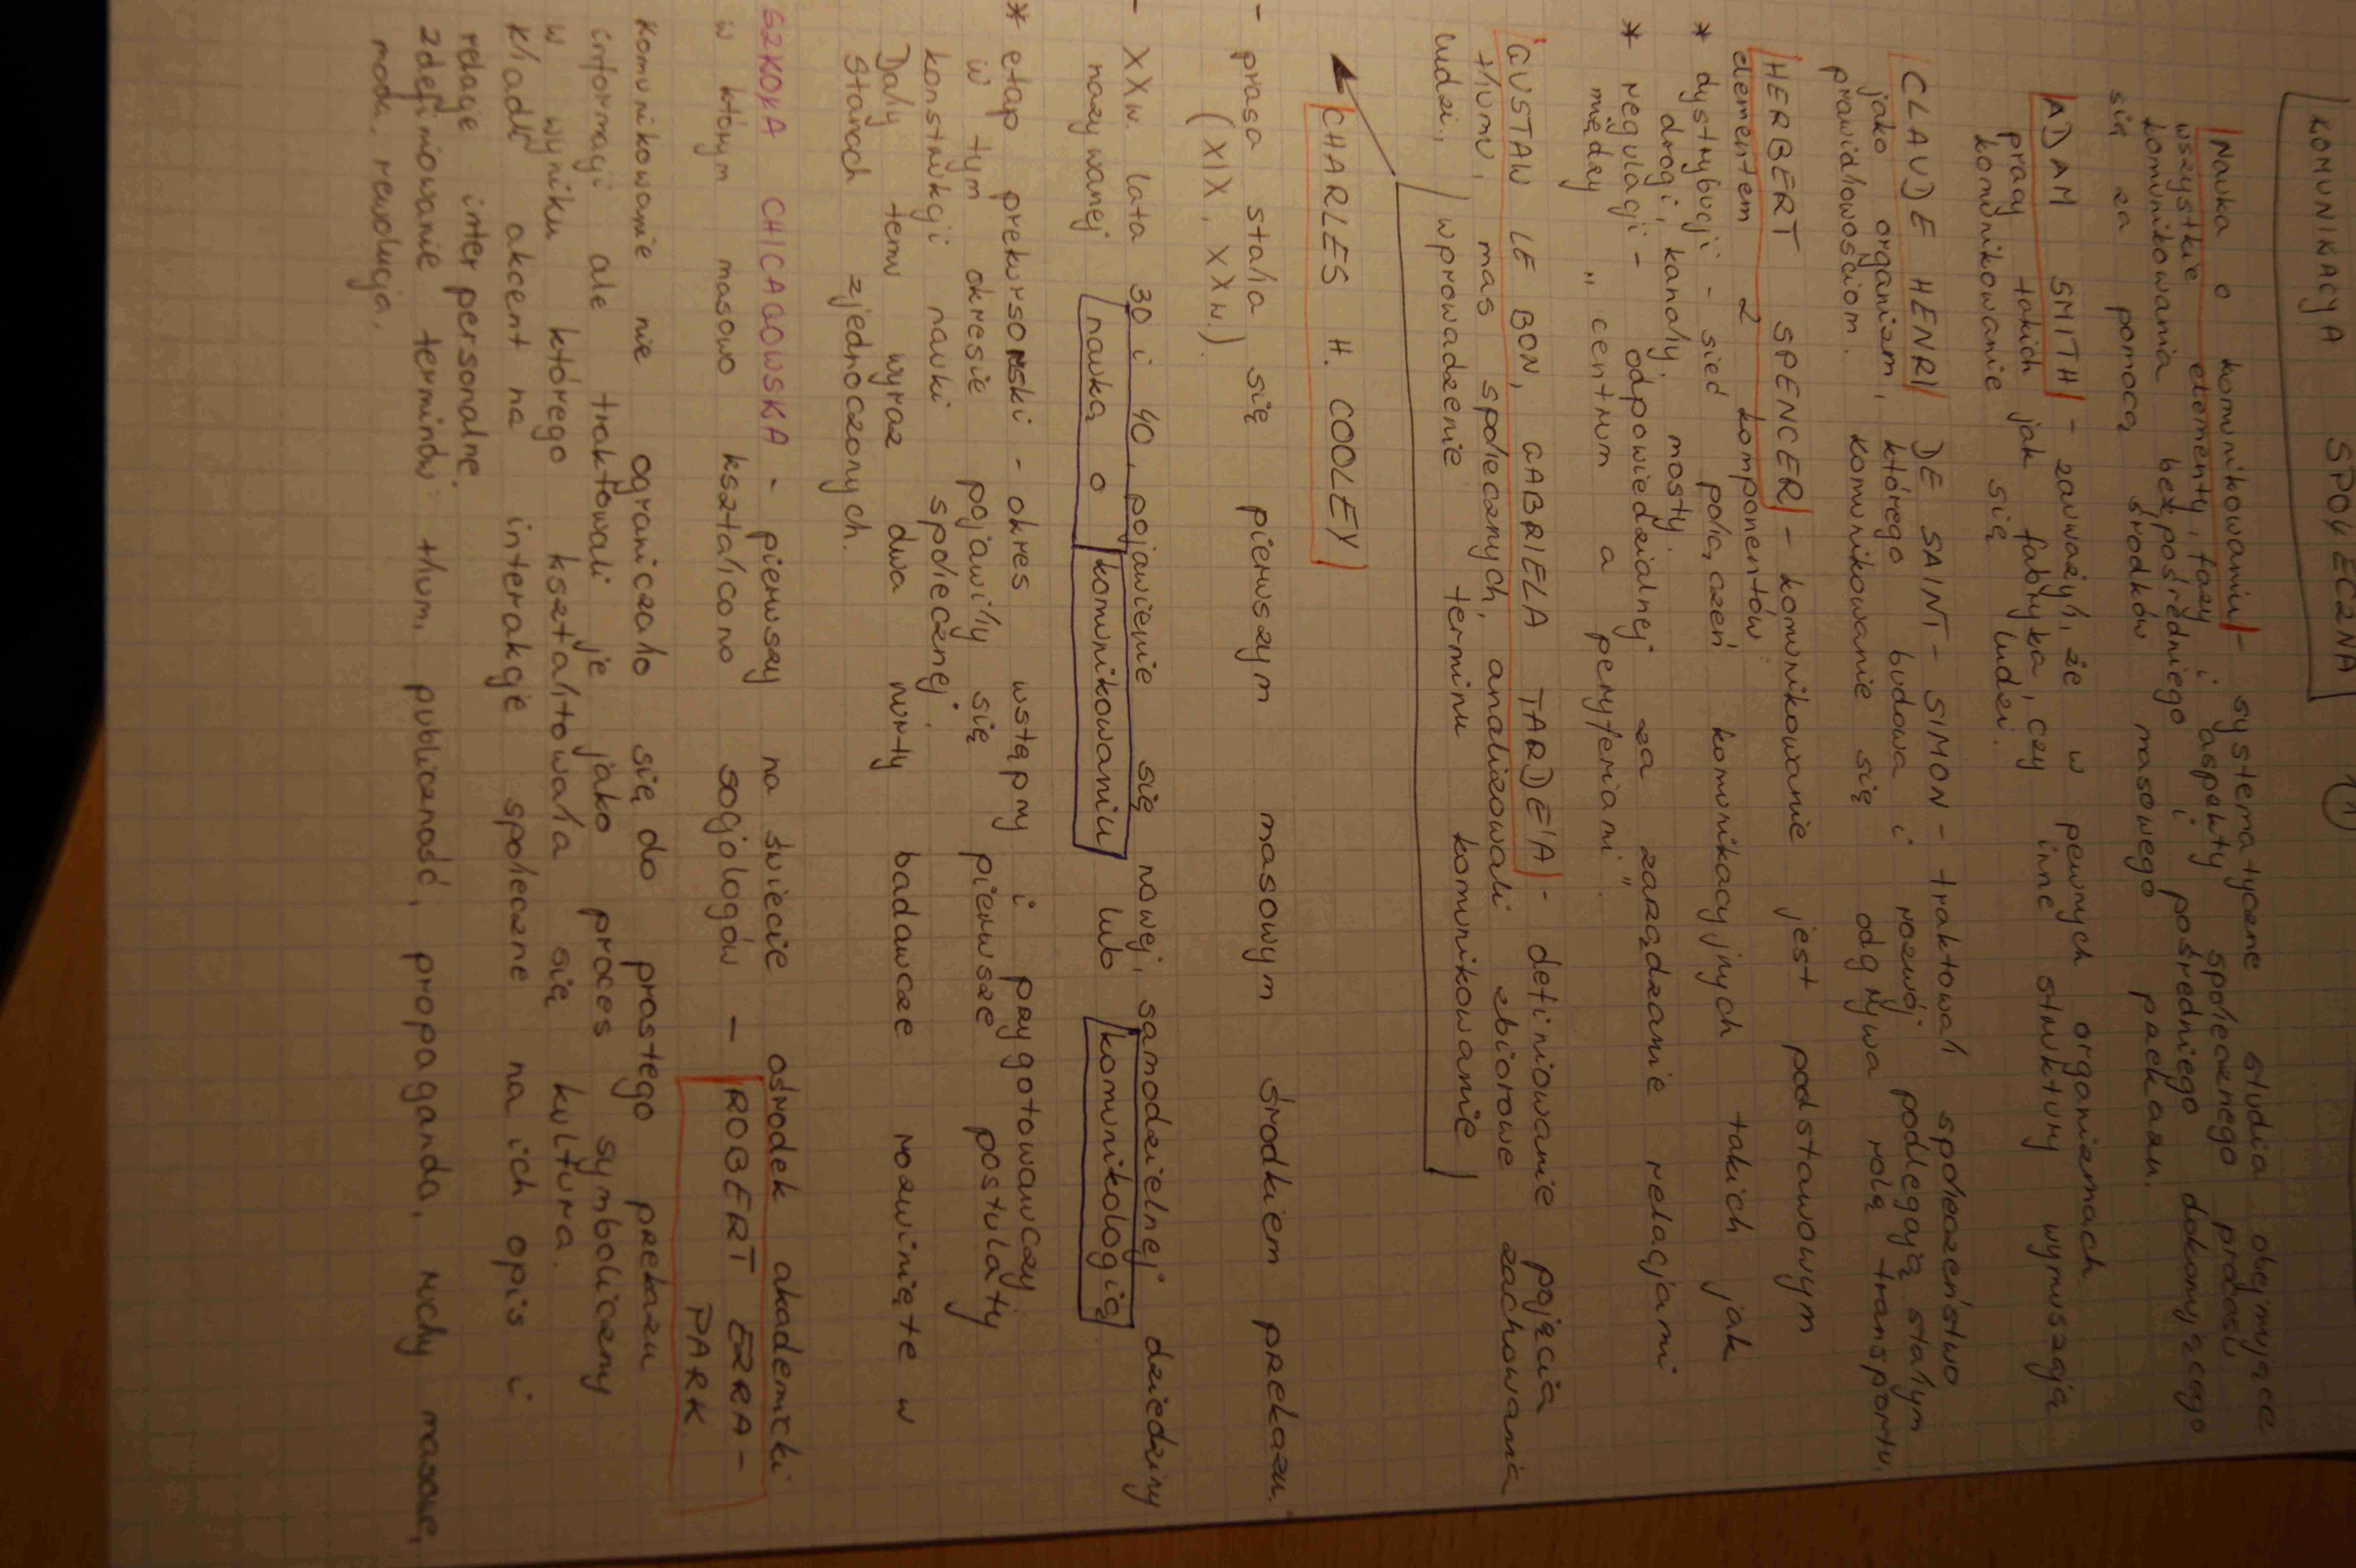 KOMUNIKACJA SPOŁECZNA 1
Nauka o komunikowaniu - systematyczne studia obejmujące
wszystkie elementy, fazy i aspekty społecznego procesu
komunikowania bezpośredniego i pośredniego dokonującego
się za pomocą środków masowego przekazu.
ADAM SMITH - zauważył, że w pewnych organizmach
pracy takich jak fabryka, czy inne struktury wymuszają
komunikowanie się ludzi.
CLAUDE HENRI DE SAINT-SIMON - traktował społeczeństwo
jako organizm, którego budowa i rozwój podlegają stałym
prawidłowościom. Komunikowanie się odgrywa rolę transportu.
HERBERT SPENCER - komunikowanie jest podstawowym
elementem 2 komponentów:
* dystrybucji - sieć połączeń komunikacyjnych takich jak
drogi, kanały, mosty.
* regulacji - odpowiedzialnej za zarządzanie relacjami
między "centrum a peryferiami".
GUSTAW LE BON, GABRIELA TARDE'A - definiowanie pojęcia
tłumu, mas społecznych, analizowali zbiorowe zachowania
ludzi, wprowadzenie terminu komunikowanie
CHARLES H. COOLEY
- prasa stała się pierwszym masowym środkiem przekazu.
(XIX, XXw.)
- XXw. lata 30 i 40, pojawienie się nowej, samodzielnej dziedziny
nazywanej nauką o komunikowaniu lub komunikologią.
* etap prekursorski - okres wstępny i przygotowawczy.
w tym okresie pojawiły się pierwsze postulaty
konstrukcji nauki społecznej.
Dały temu wyraz dwa nurty badawcze rozwinięte w
Stanach zjednoczonych.
SZKOŁA CHICAGOWSKA - pierwszy na świecie ośrodek akademicki
w którym masowo kształcono socjologów - ROBERT EZRA-
PARK
Komunikowanie nie ograniczało się do prostego przekazu
informacji ale traktowali je jako proces symboliczny
w wyniku którego kształtowała się kultura.
Kładli akcent na interakcje społeczne na ich opis i
relacje interpersonalne.
zdefiniowanie terminów: tłum, publiczność, propaganda, ruchy masowe,
moda, rewolucja.